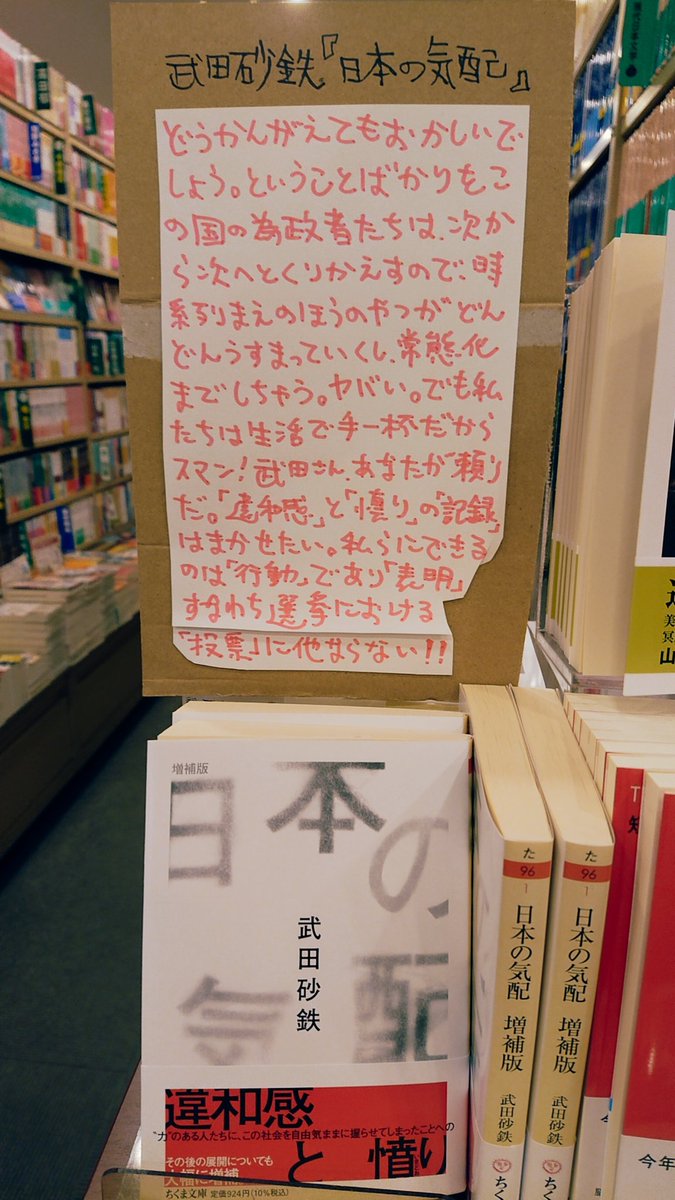 武田砂鉄『日本の気配』
どうかんがえてもおかしいで
しょう。ということばかりをこ
の国の為政者たちは、次か
ら次へとくりかえすので、時
系列まえのほうのやつがどん
どんうすまっていくし、常態化
までしちゃう。ヤバい。でも私
たちは生活で手一杯だから
スマン!武田さん、あなたが頼り
だ。「違和感」と「憤り」の「記録」
はまかせたい。私らにできる
のは「行動」であり「表明」
すなわち選挙における
「投票」に他ならない!!
増補版
日本の
気配
武田砂鉄
違和感
“力”のある人たちに、この社会を自由気ままに握らせてしまったことへの
と 憤り
その後の展開についても
大幅に増補
ちくま文庫 定価924円(10%税込)
た
96
1
日本の気配 増補版 武田砂鉄
ちくま
た
96
1
日本の気配 増補版 武田砂鉄
ちくま
今年
美
冥
山